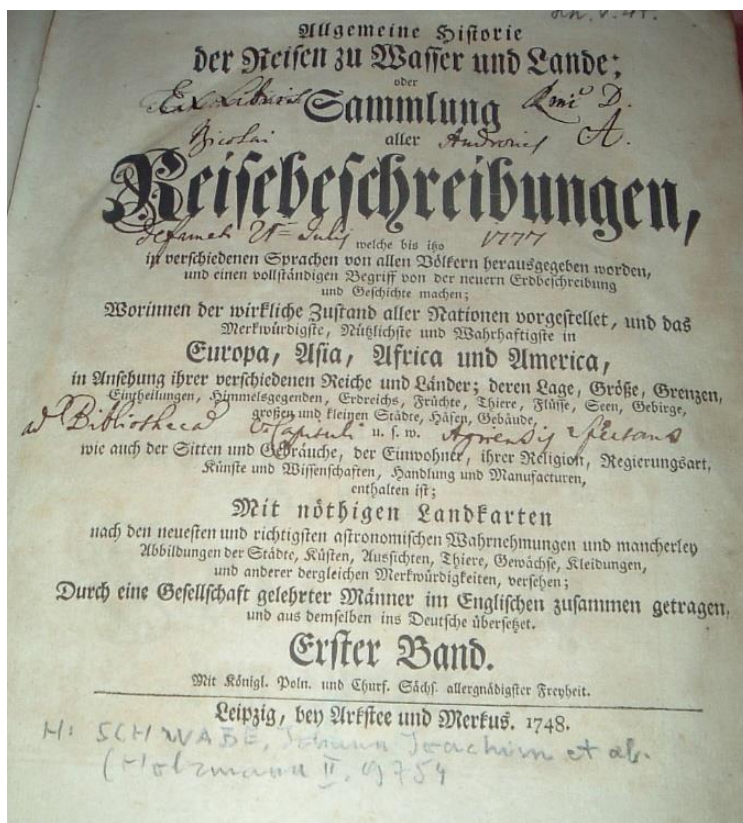 Allgemeine Historie
der Reisen zu Wasser und Lande;
oder
Ex Libris Sammlung D.
Nicolai aller A.
Reisebeschreibungen,
July welche bis itzo 1777
in verschiedenen Sprachen von allen Völkern herausgegeben worden,
und einen vollständigen Begriff von der neuern Erdbeschreibung
und Geschichte machen;
Worinnen der wirkliche Zustand aller Nationen vorgestellet, und das
Merkwürdigste, Nützlichste und Wahrhaftigste in
Europa, Asia, Africa und America,
in Ansehung ihrer verschiedenen Reiche und Länder; deren Lage, Größe, Grenzen,
Eintheilungen, Himmelsgegenden, Erdreichs, Früchte, Thiere, Flüsse, Seen, Gebirge,
großen und kleinen Städte, Häfen, Gebäude,
ad Bibliothecā u. s. w. spectans
wie auch der Sitten und Gebräuche, der Einwohner, ihrer Religion, Regierungsart,
Künste und Wissenschaften, Handlung und Manufacturen,
enthalten ist;
Mit nöthigen Landkarten
nach den neuesten und richtigsten astronomischen Wahrnehmungen und mancherley
Abbildungen der Städte, Küsten, Aussichten, Thiere, Gewächse, Kleidungen,
und anderer dergleichen Merkwürdigkeiten, versehen;
Durch eine Gesellschaft gelehrter Männer im Englischen zusammen getragen,
und aus demselben ins Deutsche übersetzet.
Erster Band.
Mit Königl. Poln. und Churf. Sächs. allergnädigster Freyheit.
Leipzig, bey Arkstee und Merkus. 1748.
H: SCHWABE, Johann Joachim et al.
(Holzmann II. 9754